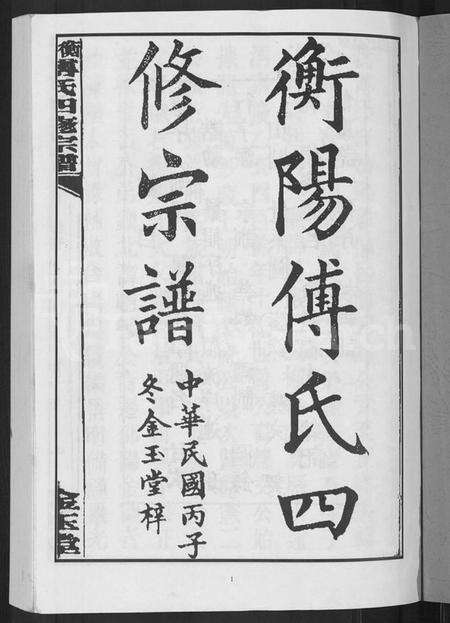 衡陽傅氏四
修宗譜
中華民國丙子
冬金玉堂梓
衡陽傅氏四修宗譜
金玉堂
1